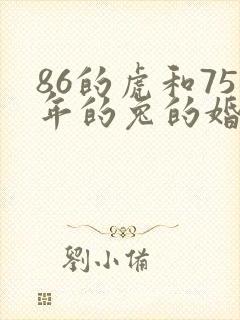 86的虎和75
年的兔的婚
劉小備